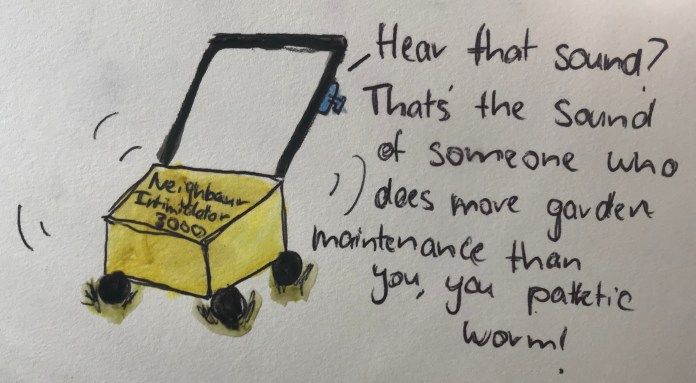 Neighbour
Intimidator
3000
Hear that sound?
That's the sound
of someone who
does more garden
maintenance than
you, you pathetic
worm!